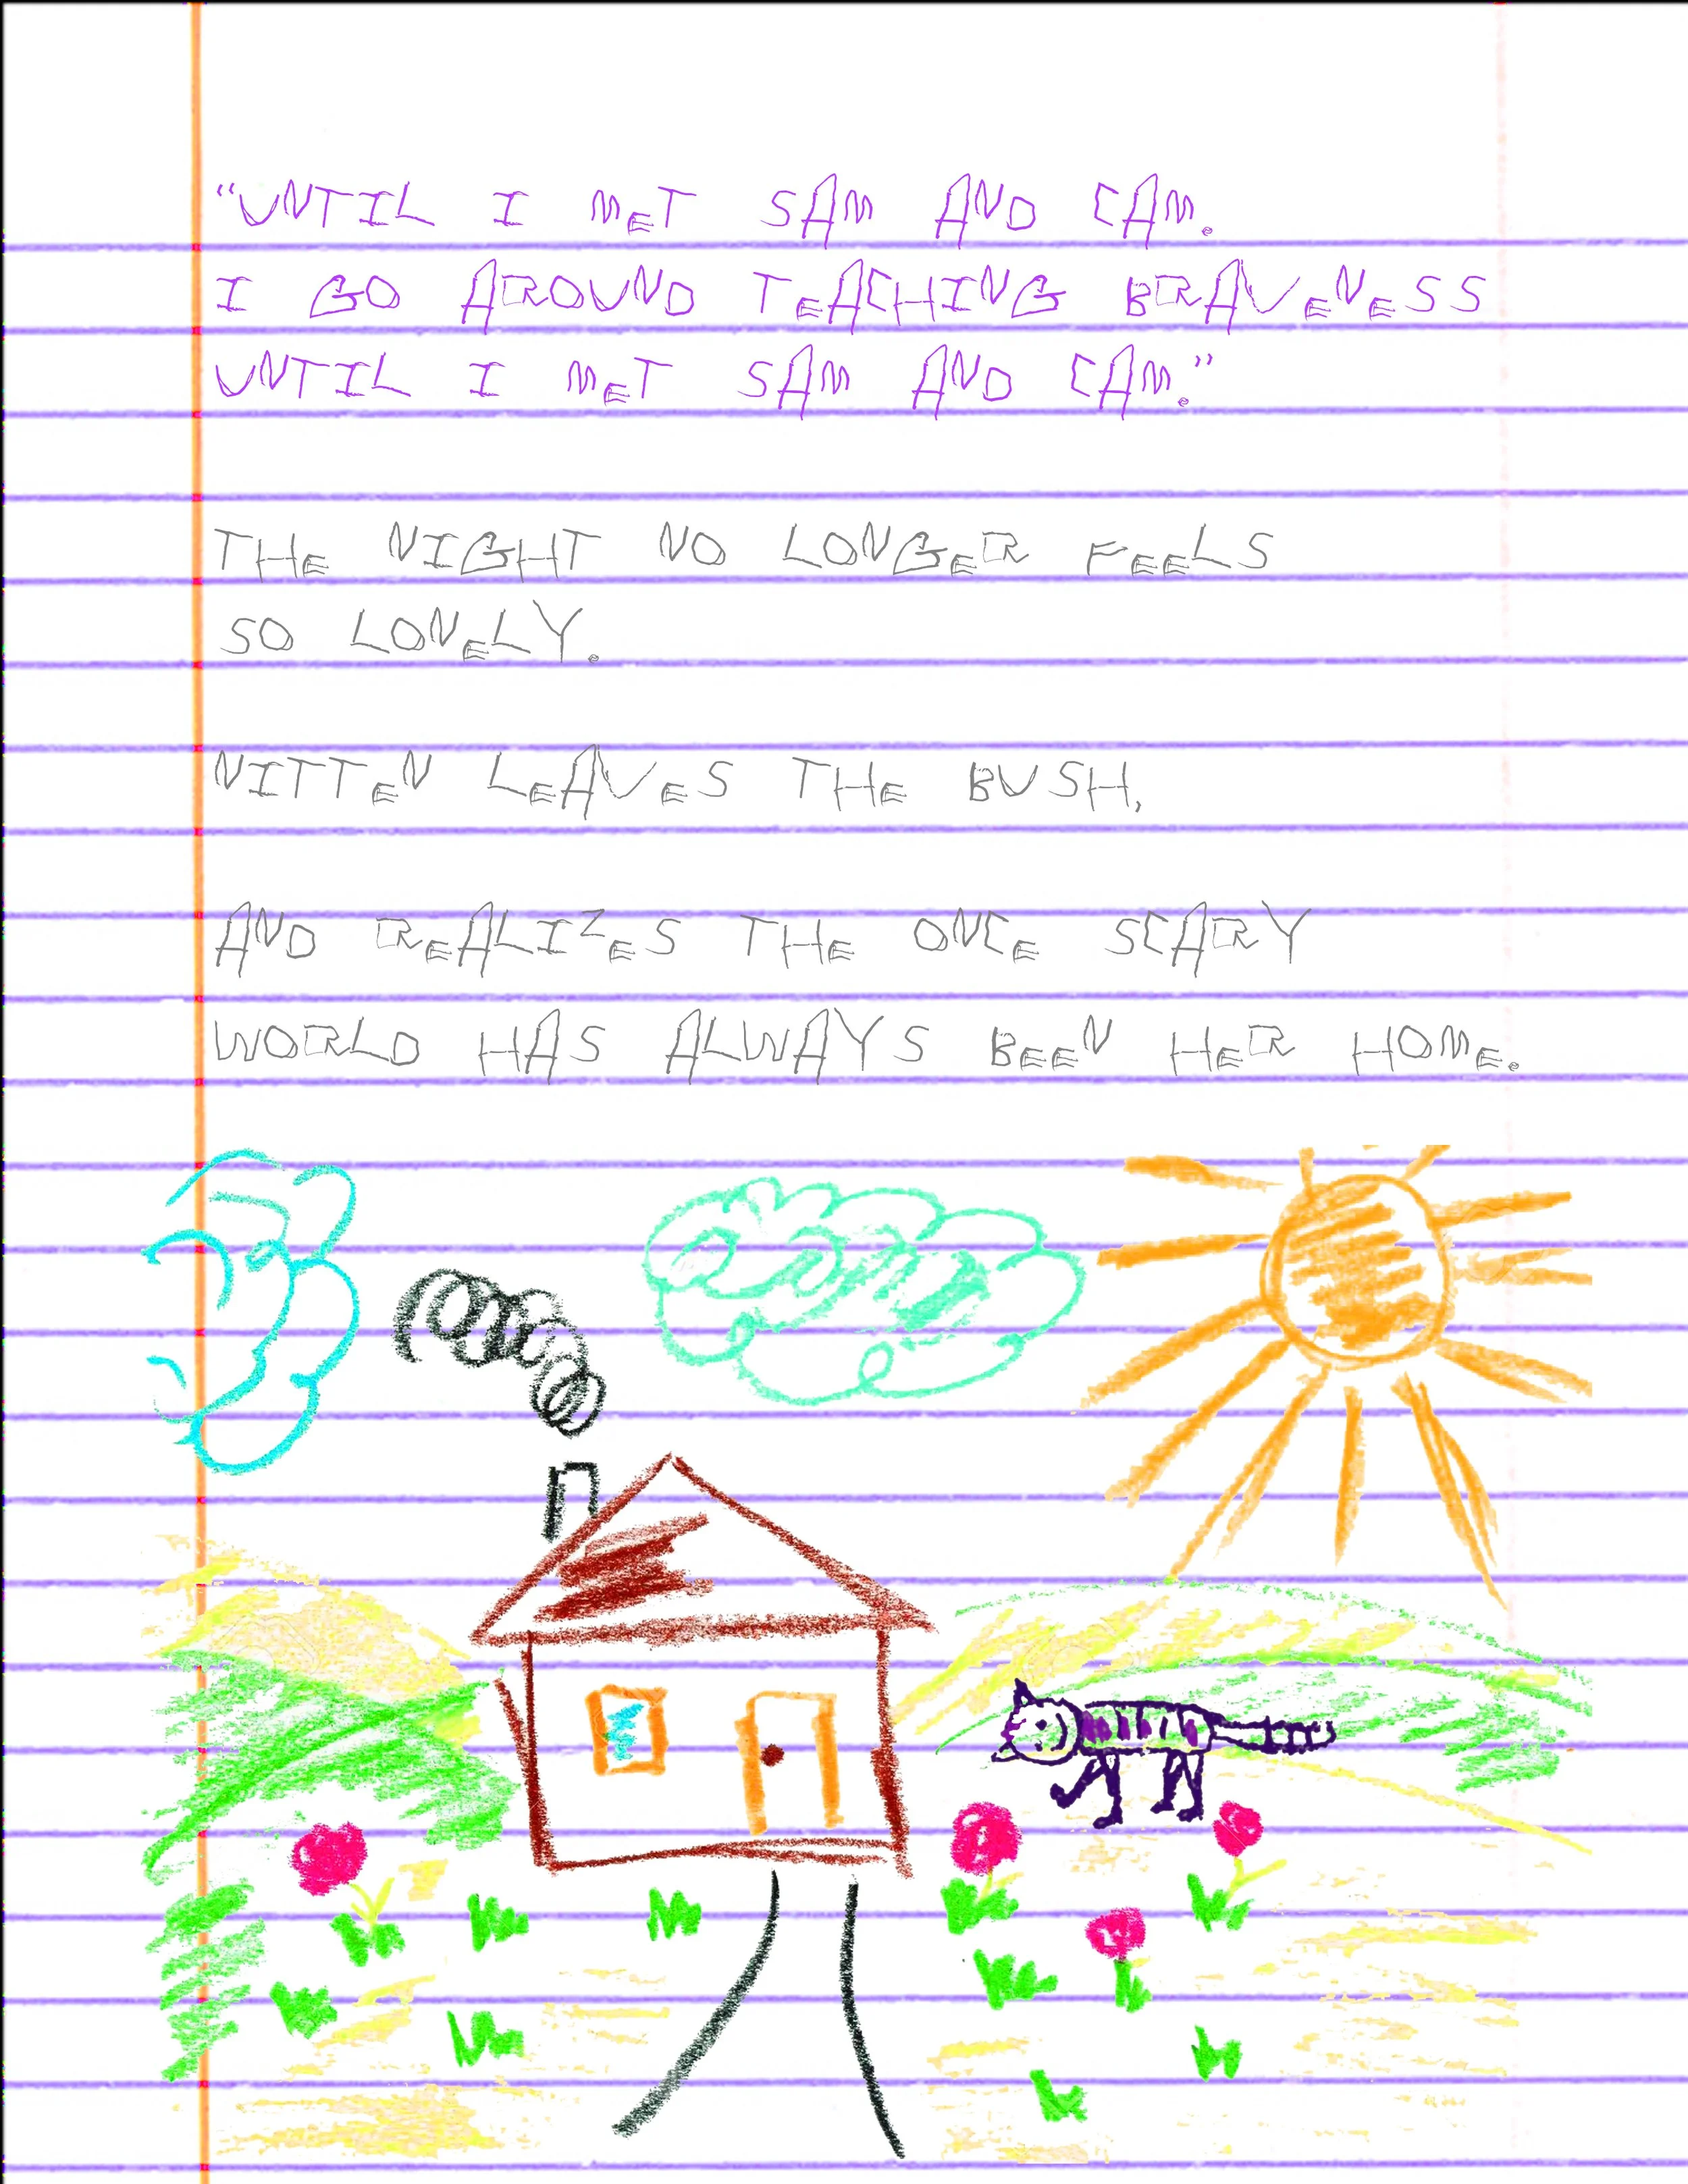 "UNTIL I MET SAM AND CAM.
I GO AROUND TEACHING BRAVENESS
UNTIL I MET SAM AND CAM."
THE NIGHT NO LONGER FEELS
SO LONELY.
NITTEN LEAVES THE BUSH,
AND REALIZES THE ONCE SCARY
WORLD HAS ALWAYS BEEN HER HOME.